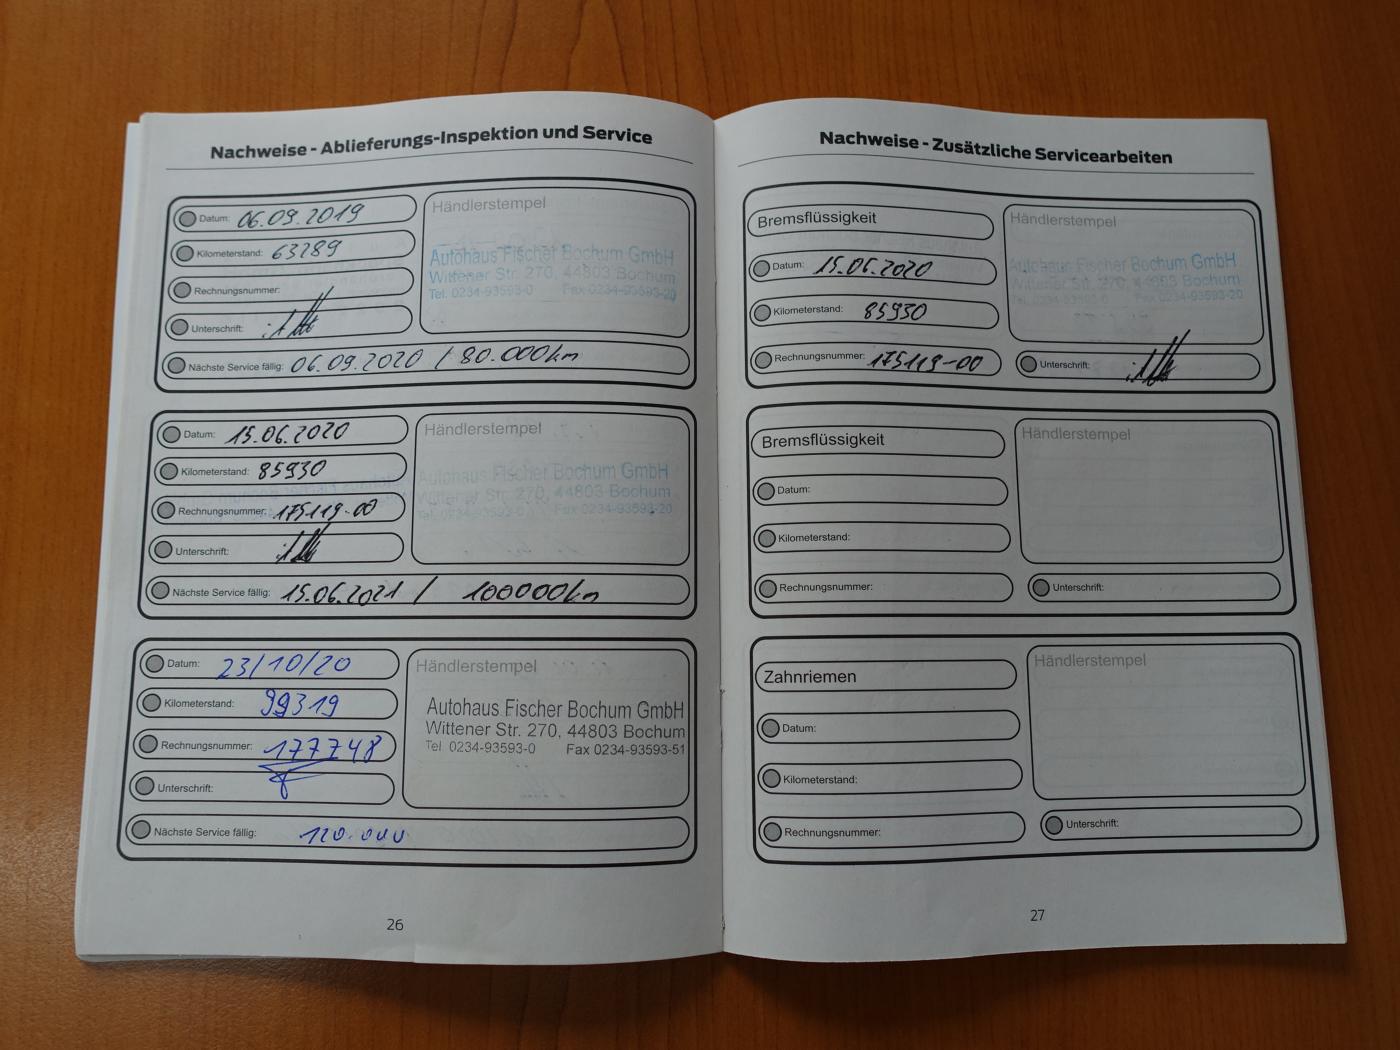 Nachweise - Ablieferungs-Inspektion und Service
Datum: 06.09.2019
Kilometerstand: 63289
Rechnungsnummer:
Unterschrift:
Nächste Service fällig: 06.09.2020 / 80.000km
Händlerstempel
Autohaus Fischer Bochum GmbH
Wittener Str. 270, 44803 Bochum
Tel. 0234-93593-0 Fax 0234-93593-20
Datum: 15.06.2020
Kilometerstand: 85930
Rechnungsnummer: 175119-00
Unterschrift:
Nächste Service fällig: 15.06.2021 / 100000km
Händlerstempel
Autohaus Fischer Bochum GmbH
Wittener Str. 270, 44803 Bochum
Tel. 0234-93593-0 Fax 0234-93593-20
Datum: 23/10/20
Kilometerstand: 99319
Rechnungsnummer: 177748
Unterschrift:
Nächste Service fällig: 120.000
Händlerstempel
Autohaus Fischer Bochum GmbH
Wittener Str. 270, 44803 Bochum
Tel. 0234-93593-0 Fax 0234-93593-51
26
Nachweise - Zusätzliche Servicearbeiten
Bremsflüssigkeit
Datum: 15.06.2020
Kilometerstand: 85930
Rechnungsnummer: 175119-00
Händlerstempel
Autohaus Fischer Bochum GmbH
Wittener Str. 270, 44803 Bochum
Tel. 0234-93593-0 Fax 0234-93593-20
Unterschrift:
Bremsflüssigkeit
Datum:
Kilometerstand:
Rechnungsnummer:
Händlerstempel
Unterschrift:
Zahnriemen
Datum:
Kilometerstand:
Rechnungsnummer:
Händlerstempel
Unterschrift:
27